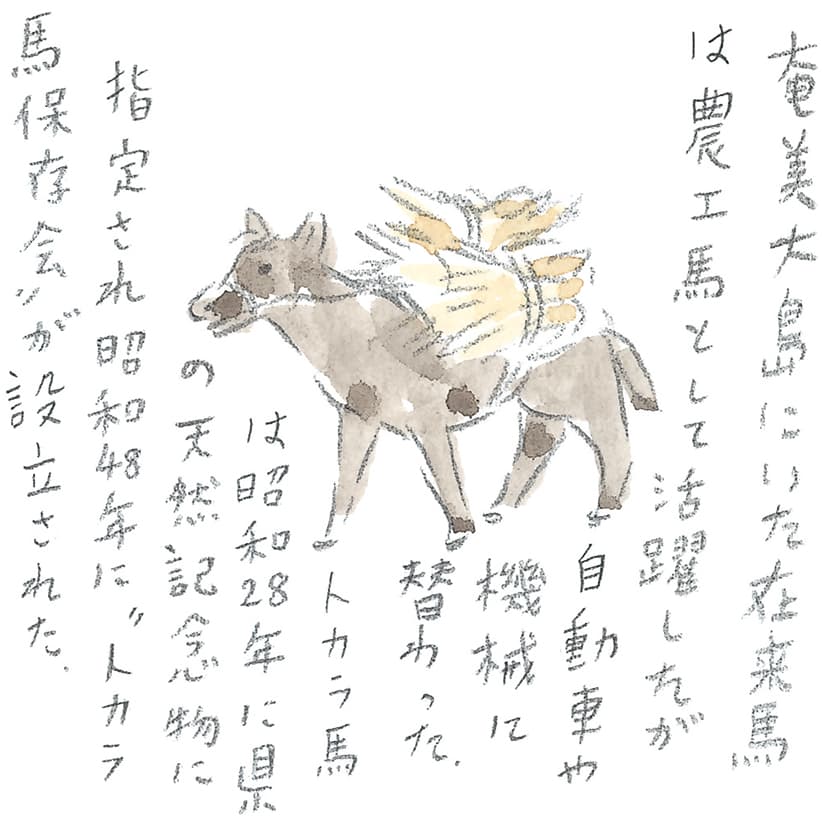 奄美大島にいた在来馬
は農工馬として活躍したが
自動車や
機械に
替わった.
トカラ馬
は昭和28年に県
の天然記念物に
指定され昭和48年に〃トカラ
馬保存会〃が設立された.